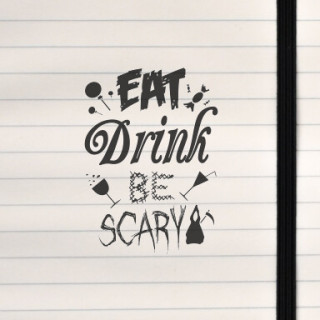 EAT
Drink
BE
SCARY